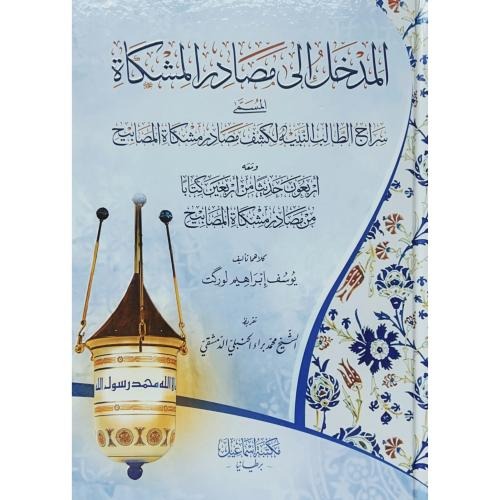 المدخل إلى مصادر المشكاة
المسمى
سراج الطالب النبيه لكشف مصادر مشكاة المصابيح
ومعه
أربعون حديثا من أربعين كتابا
من مصادر مشكاة المصابيح
كلاهما تأليف
يوسف إبراهيم لورگت
تقريظ
الشيخ محمد براء الحنبلي الدمشقي
لا اله الا الله محمد رسول الله
مكتبة إسماعيل
- برطانيا -